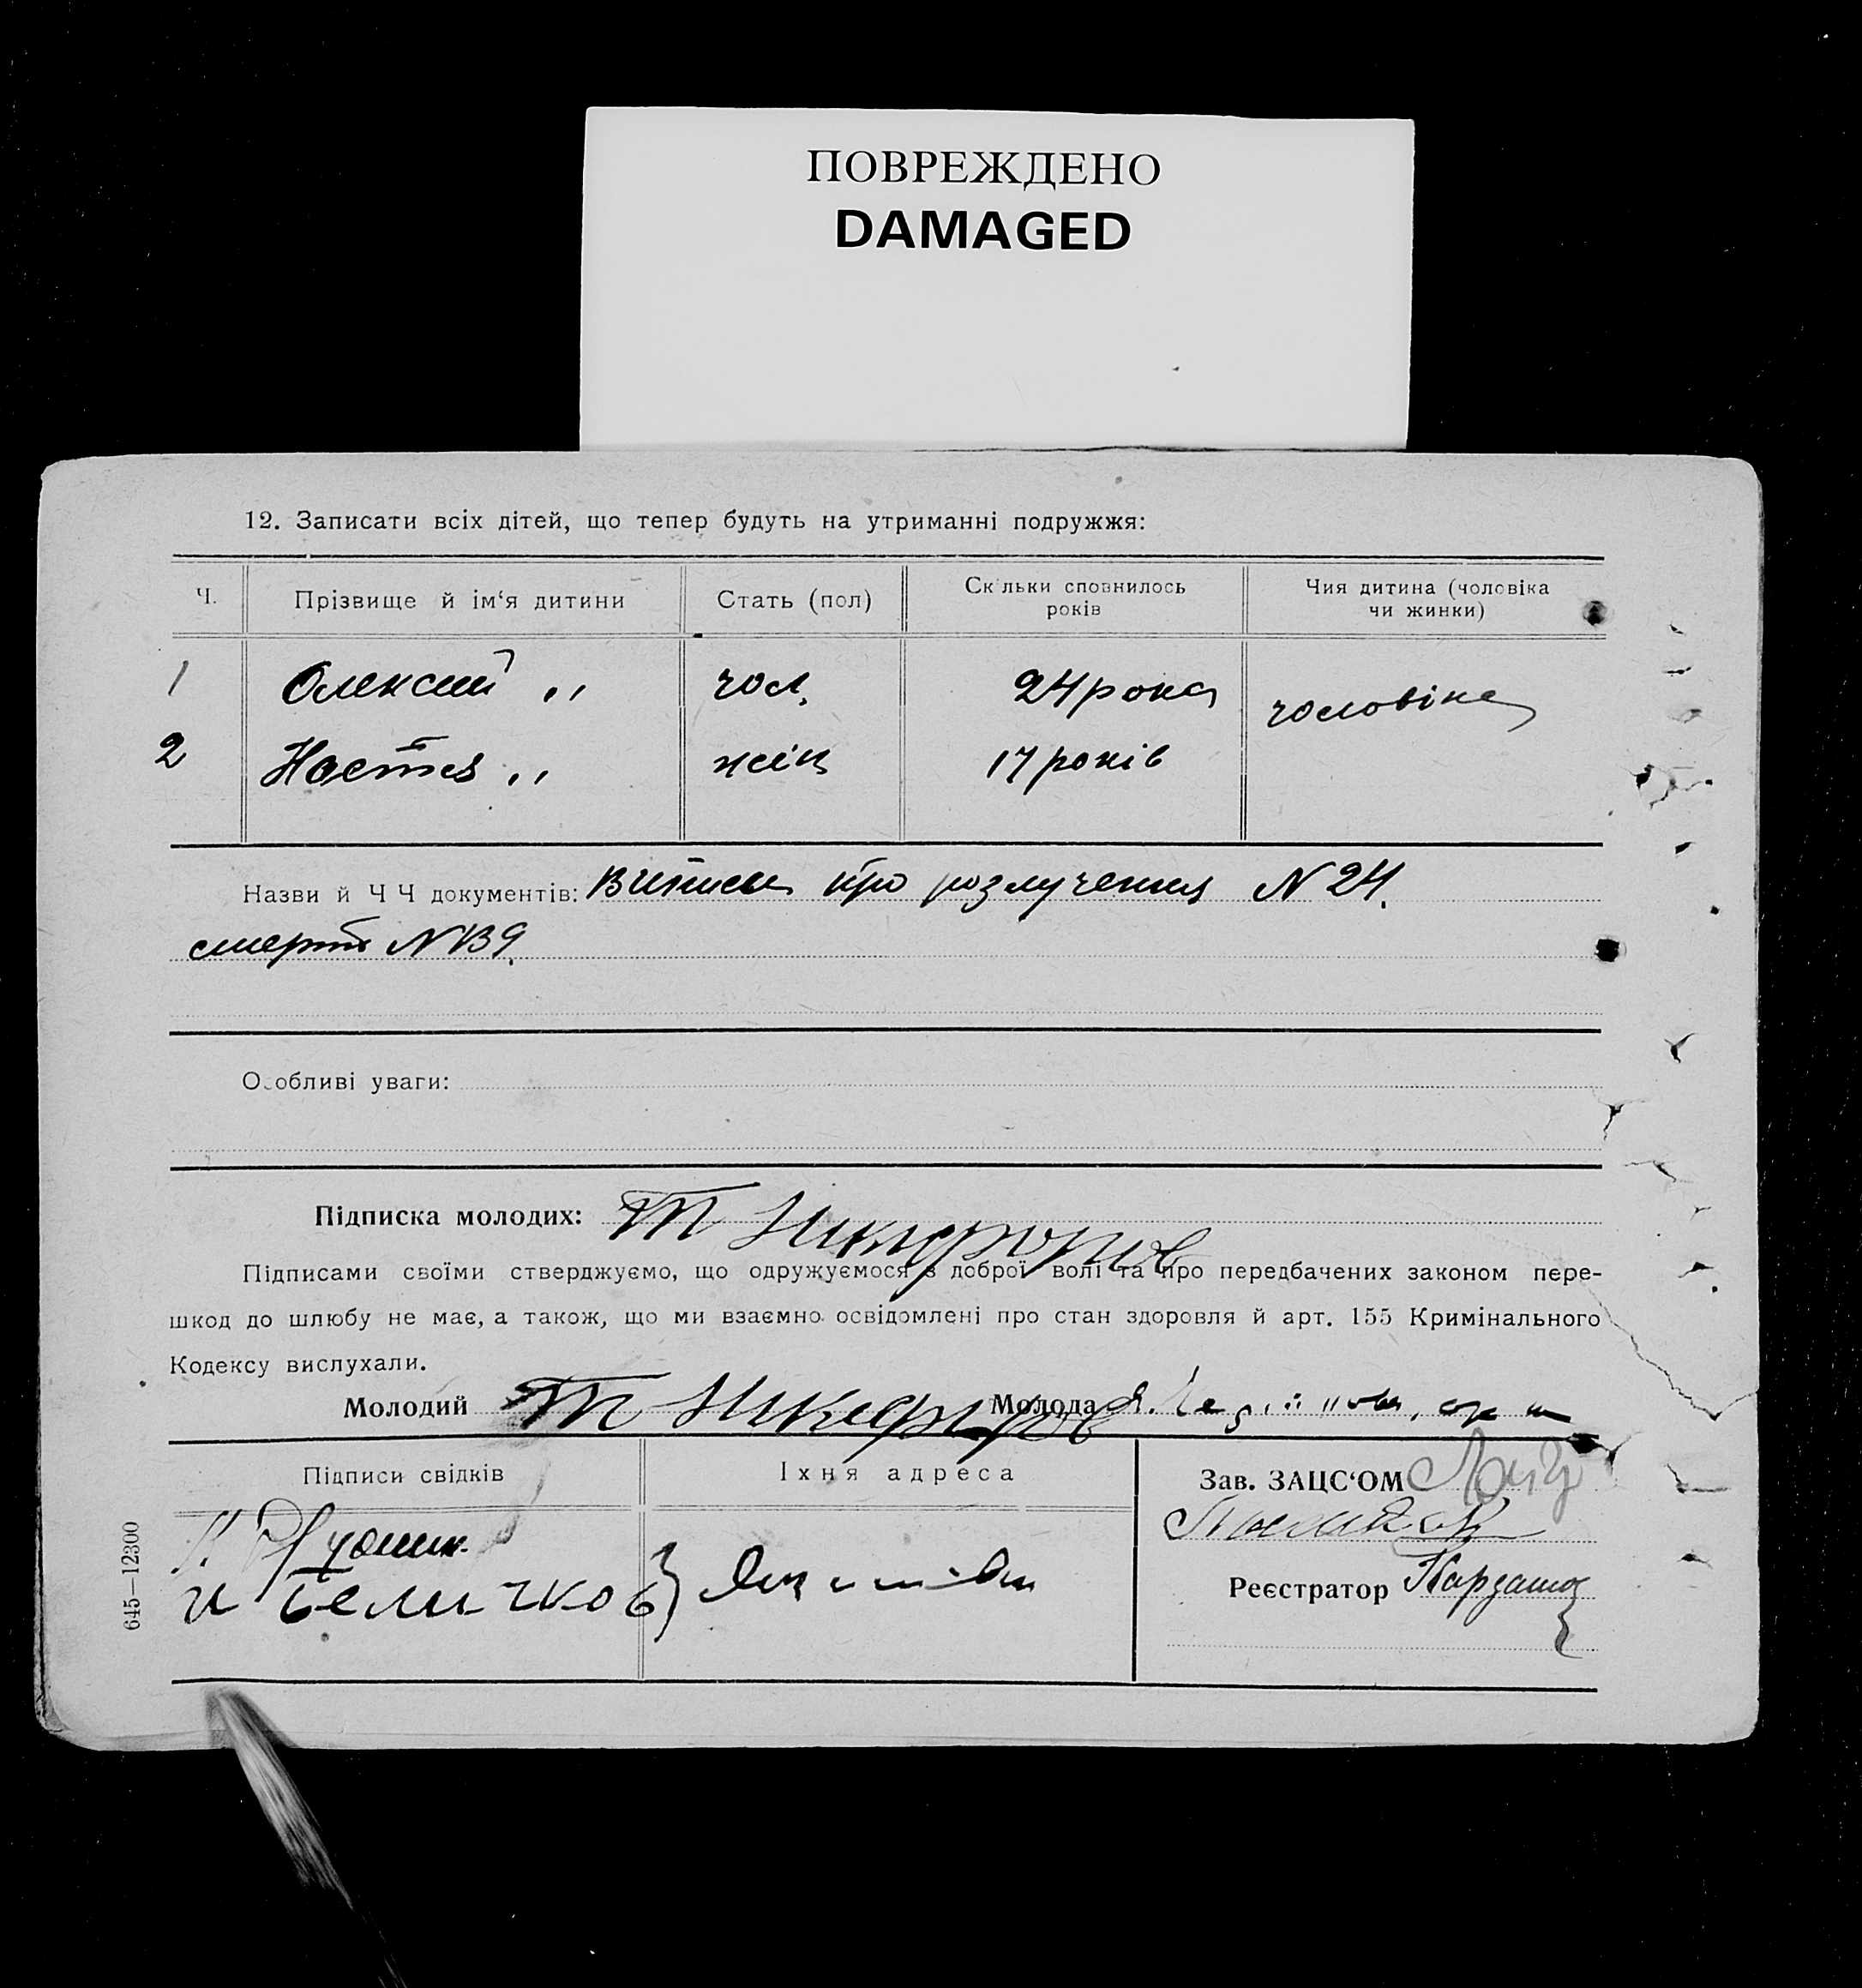 ПОВРЕЖДЕНО
DAMAGED
12. Записати всіх дітей, що тепер будуть на утриманні подружжя:
Ч. Прізвище й ім‘я дитини Стать (пол) Скільки сповнилось років Чия дитина (чоловіка чи жинки)
1 Олексий ,, чол. 24 рока чоловіка
2 Настя ,, жін 17 років
Назви й Ч Ч документів: Витиси про розлучення N 24.
смерть N 139.
Особливі уваги:
Підписка молодих: Т Никифоров
Підписами своїми стверджуємо, що одружуємося з доброї волі та про передбачених законом пере-
шкод до шлюбу не має, а також, що ми взаємно освідомлені про стан здоровля й арт. 155 Кримінального
Кодексу вислухали.
Молодий Т Никифоров Молода
Підписи свідків Їхня адреса Зав. ЗАЦС‘ОМ
И Беличков
Реєстратор Кардаш
645—12300